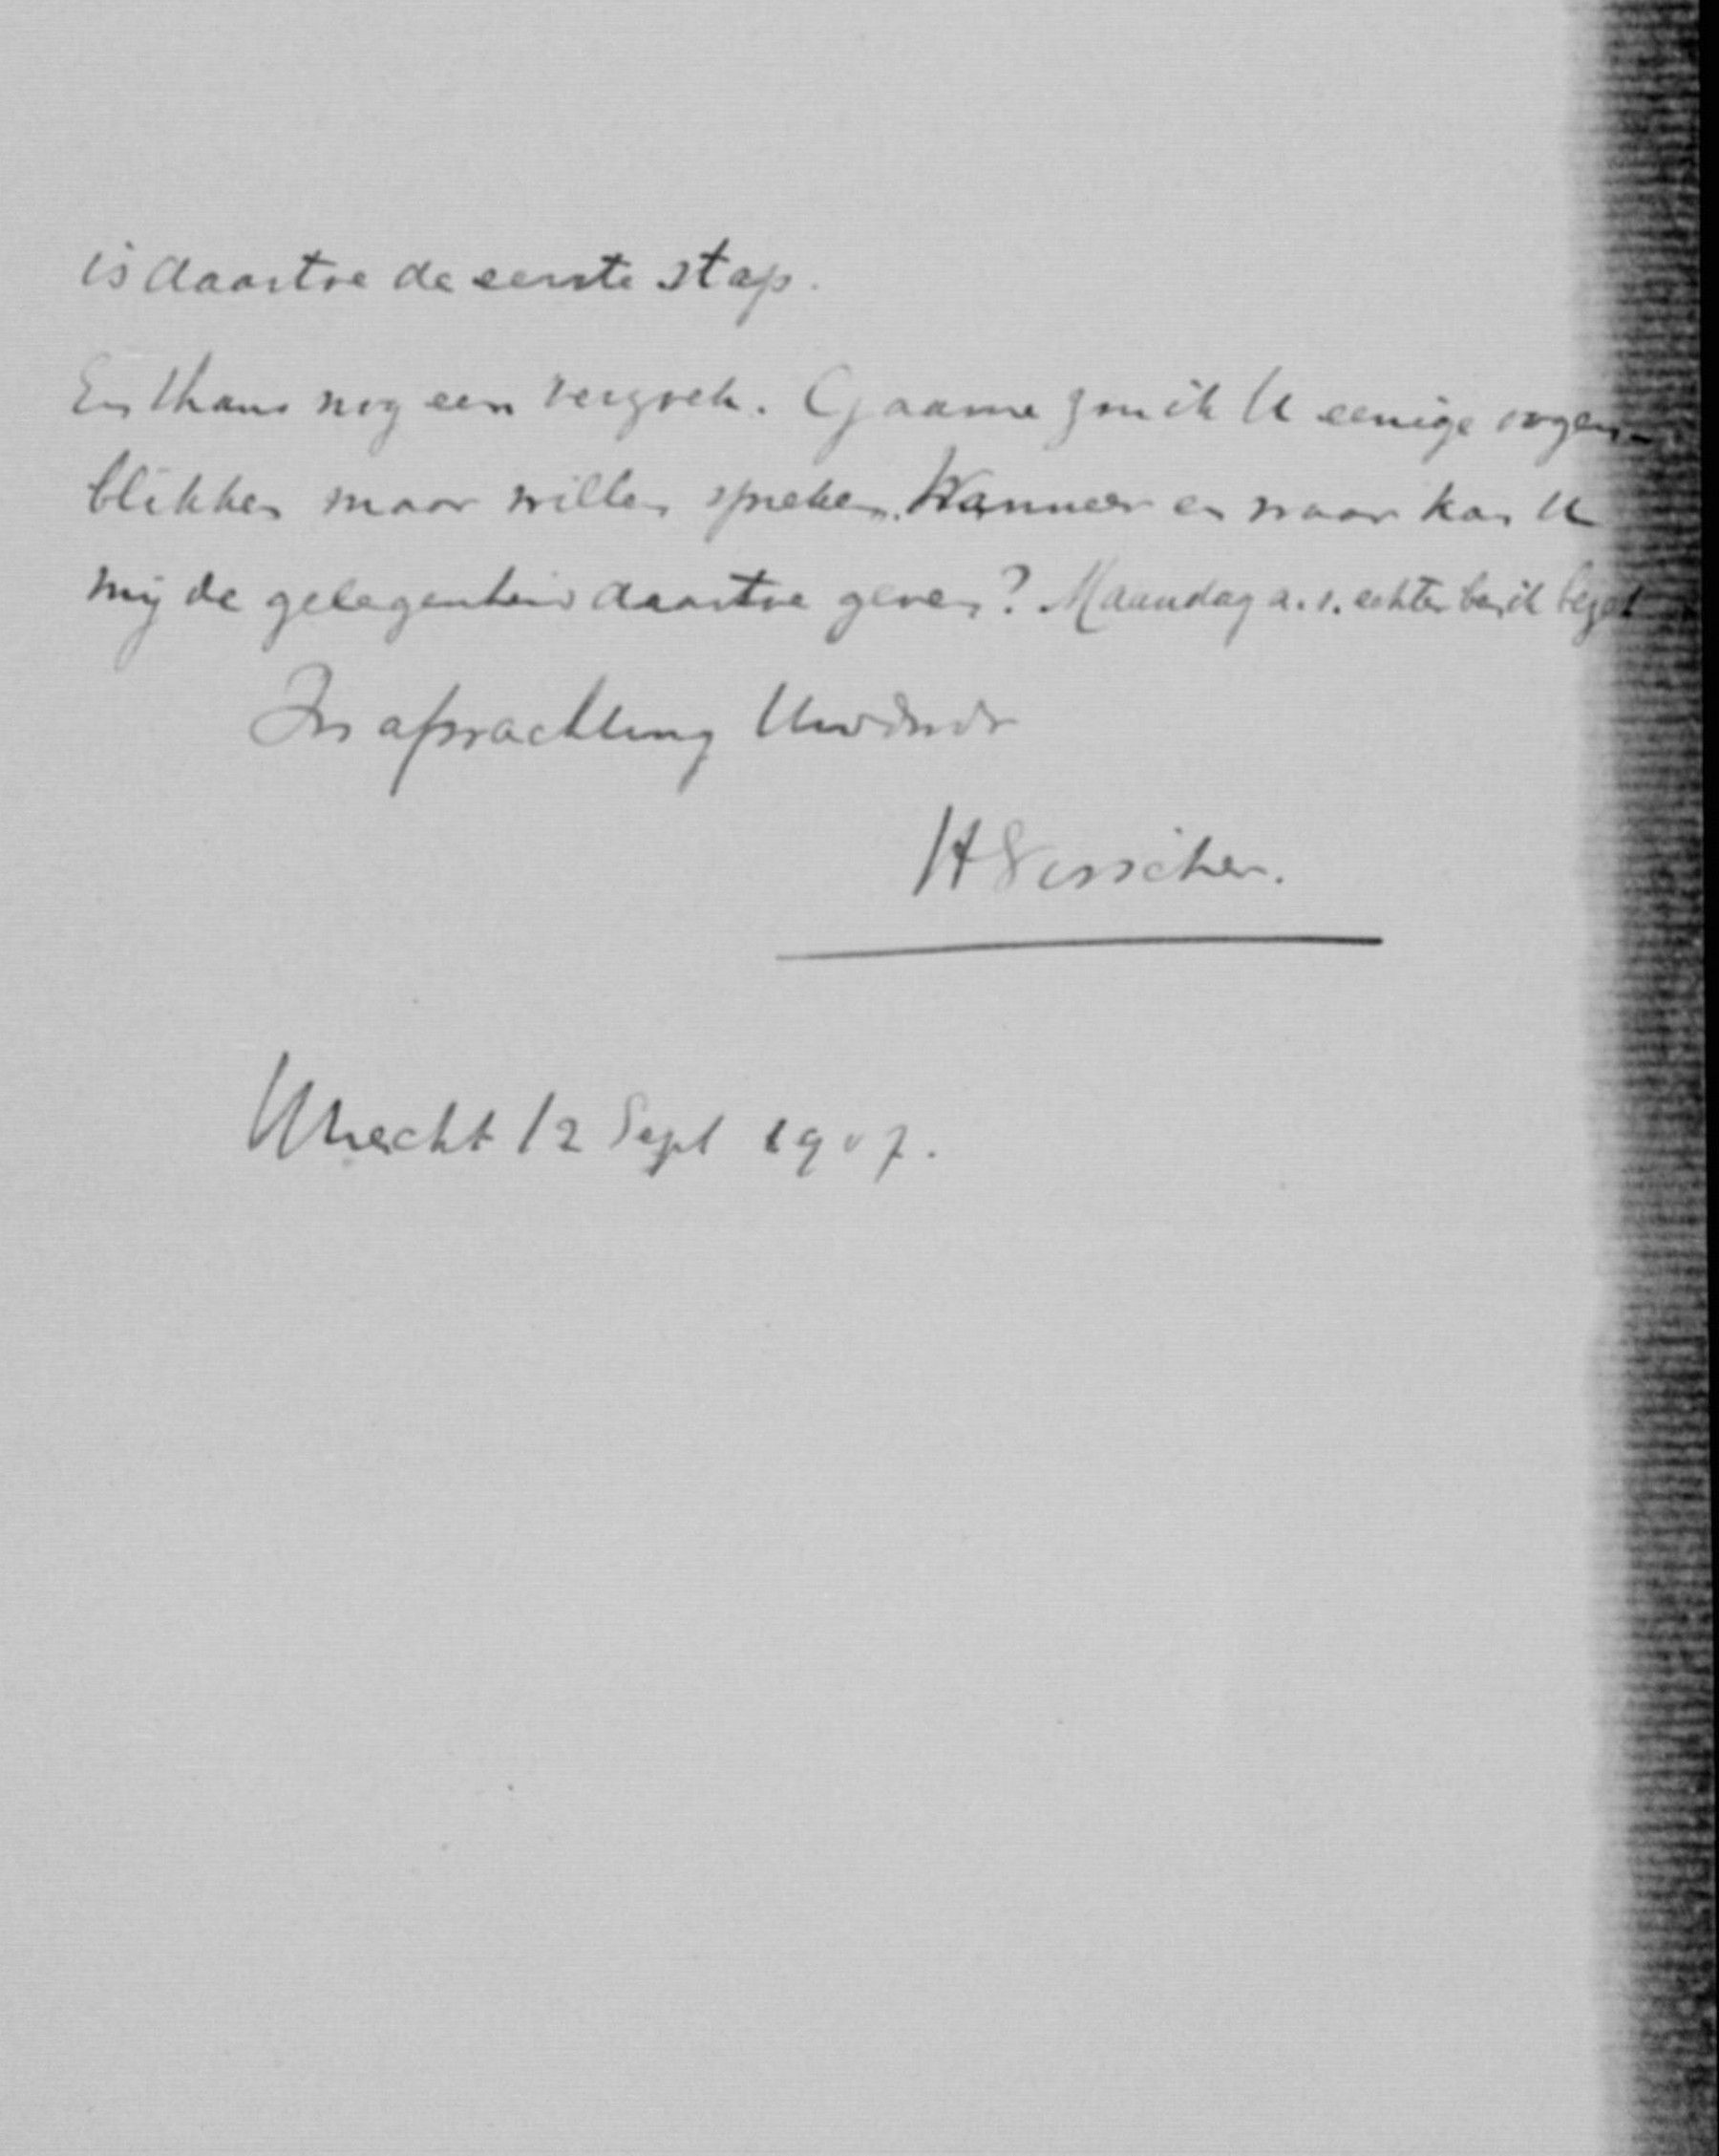 is daartoe de eerste stap.
En thans nog een verzoek. Gaarne zou ik U eenige oogen-
blikken maar willen spreken. Wanneer en waar kan U
mij de gelegenheid daartoe geven? Maandag a.s. echter ben ik bezet
In afwachting Uwdwdr
H Visscher.
Utrecht 12 Sept 1907.